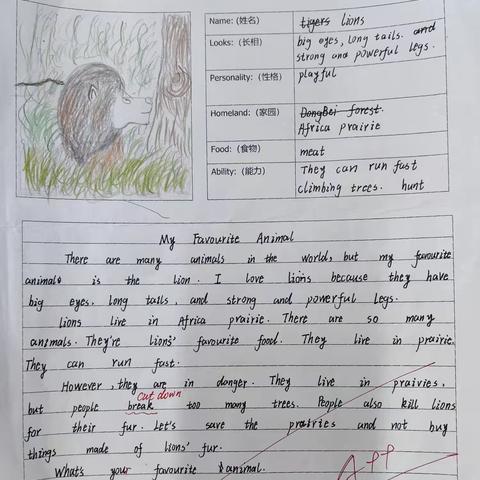 Name: (姓名) tigers lions
Looks: (长相) big eyes, long tails. and
strong and powerful legs.
Personality: (性格) playful
Homeland: (家园) DongBei forest.
Africa prairie
Food: (食物) meat
Ability: (能力) They can run fast
climbing trees. hunt
My Favourite Animal
There are many animals in the world, but my favourite
animals is the lion. I love lions because they have
big eyes. long tails, and strong and powerful legs.
lions live in Africa prairie. There are so many
animals. They're lions' favourite food. They live in prairie.
They can run fast.
However, they are in danger. They live in prairies,
cut down
but people break too many trees. People also kill lions
for their fur. Let's save the prairies and not buy
things made of lions' fur.
What's your favourite animal.
A++